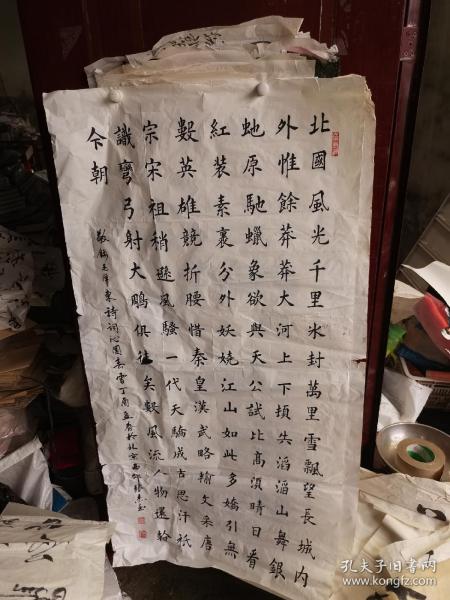 北國風光千里冰封萬里雪飄望長城內
外惟餘莽莽大河上下頃失滔滔山舞銀
虵原馳蠟象欲與天公試比高須晴日看
紅裝素裹分外妖嬈江山如此多嬌引無
數英雄競折腰惜秦皇漢武略輸文采唐
宗宋祖稍遜風騷一代天驕成吉思汗祇
識彎弓射大鵬俱往矣數風流人物還
今朝
敬錄毛澤東詩詞沁園春雪丁酉孟春於北京
孔夫子旧书网
www.kongfz.com